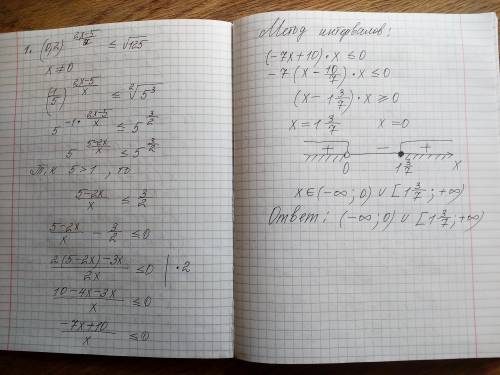 1. (0,2)^((2x-5)/x) ≤ √125
x ≠ 0
(1/5)^((2x-5)/x) ≤ ²√5³
5^(-1·(2x-5)/x) ≤ 5^(3/2)
5^((5-2x)/x) ≤ 5^(3/2)
Т.к 5>1, то
(5-2x)/x ≤ 3/2
(5-2x)/x - 3/2 ≤ 0
(2(5-2x)-3x)/(2x) ≤ 0 | ·2
(10-4x-3x)/x ≤ 0
(-7x+10)/x ≤ 0
Метод интервалов:
(-7x+10)·x ≤ 0
-7(x-10/7)·x ≤ 0
(x-1 3/7)·x ≥ 0
x=1 3/7 x=0
+ - +
0 1 3/7 x
x∈(-∞;0) ∪ [1 3/7; +∞)
Ответ: (-∞;0) ∪ [1 3/7; +∞)